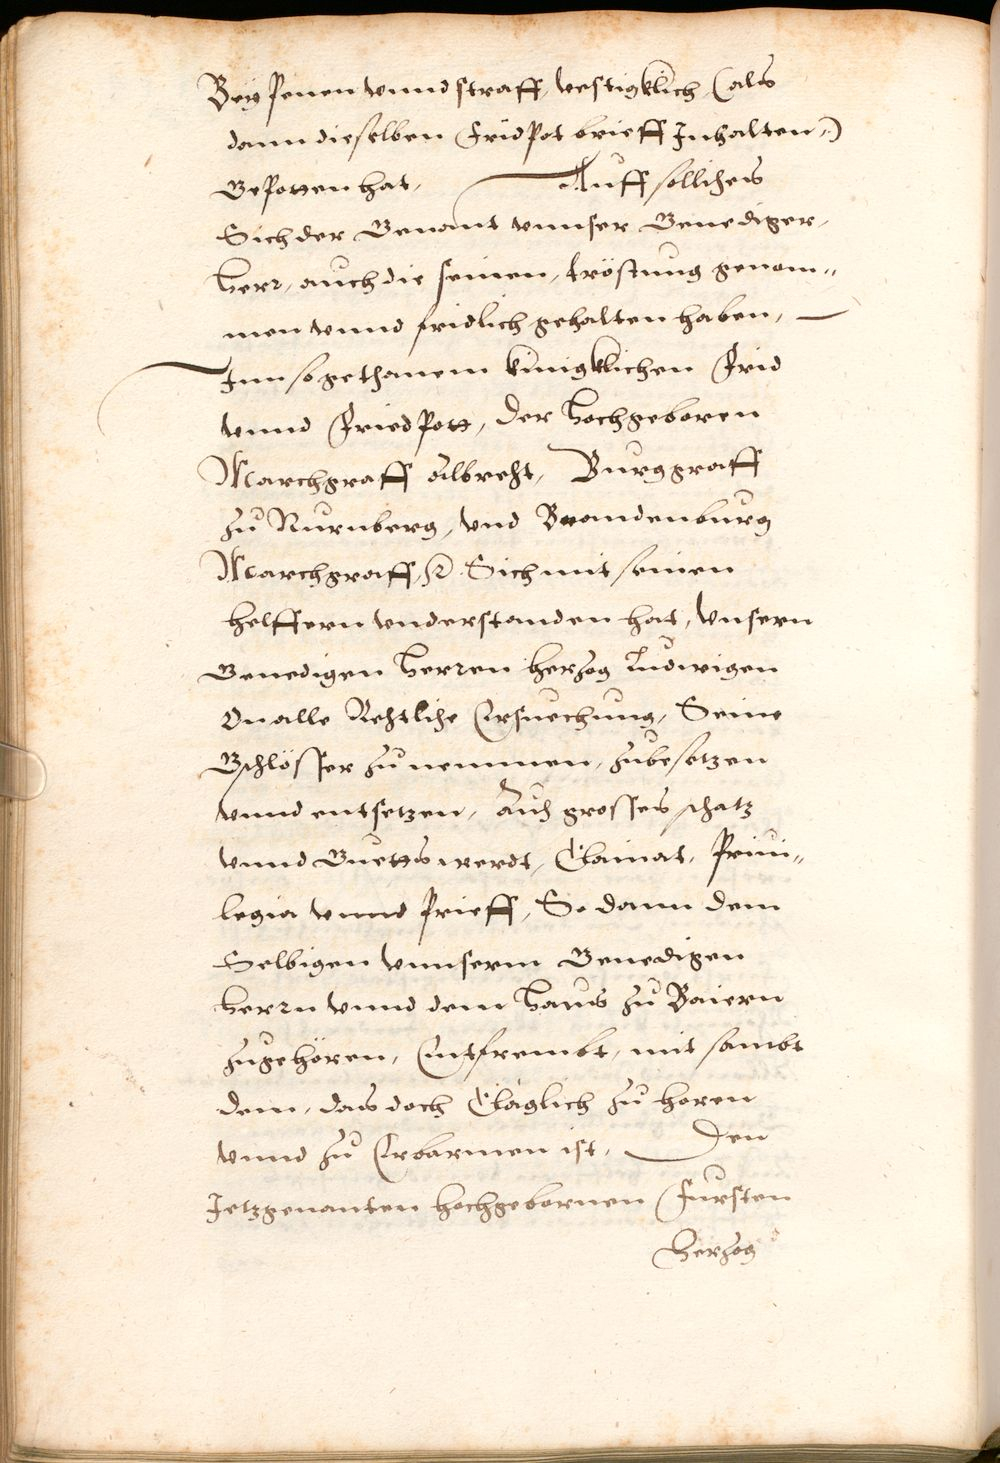 Bey Penen vnnd straff, vestigklich (als
dann dieselben Fridpot brieff Inhalten,)
Gepotten hat, Auff solliches
Sich der Genant vnnser Genediger,
herr, auch die seinen, tröstung genom=
men vnnd fridlich gehalten haben,
Inn sogethanem künigklichen Frid
vnnd Friedpott, der hochgeboren
Marchgraff Albrecht, Burggraff
zu Nurnberg, vnd Brandenburg
Marchgraff, Sich mit seinen
helffern vnderstanden hat, vnsern
Genedigen herren herzog Ludwigen
On alle Rechtliche Ersuechung, Seine
Gschlösser zu nemmen, zubesetzen
vnnd entsetzen, Auch grosses schatz
vnnd Guettswerdt, Clainat, Priui=
legia vnnd Prieff, So dann dem
Selbigen vnnserm Genedigen
herrn vnnd dem haus zu Baiern
zugehören, Entfrembt, mit sambt
dem, das doch Cläglich zu horen
vnnd zu Erbarmen ist, Den
Jetzgenanten hochgebornen Fursten
Herzog